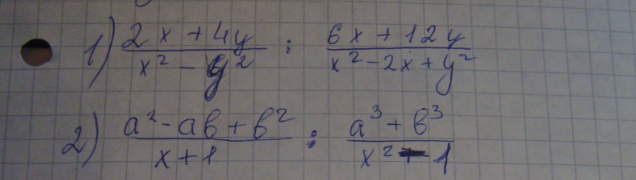 1) (2x + 4y)/(x² - y²) : (6x + 12y)/(x² - 2x + y²)
2) (a² - ab + b²)/(x + 1) : (a³ + b³)/(x² - 1)